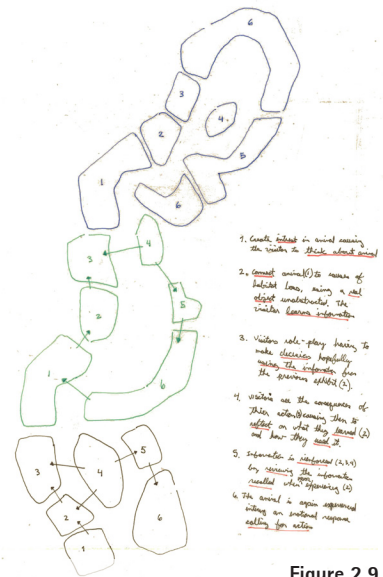 6
3
4
2
5
1
6
4
3
5
2
1
6
3
4
5
2
6
1
1. Create interest in animal causing
the visitor to think about animal
2. Connect animal(1) to causes of
habitat loss, using a real
object unabstracted. The
visitor learns information
3. Visitors role-play having to
make decisions hopefully
using the information from
the previous exhibit (2).
4. visitors see the consequences of
their actions causing them to
reflect on what they learned (2)
and how they used it.
5. Information is reinforced (2,3,4)
by reviewing the information
recalled when experiencing (2)
6. The animal is again experienced
an emotional response
calling for action
Figure 2.9